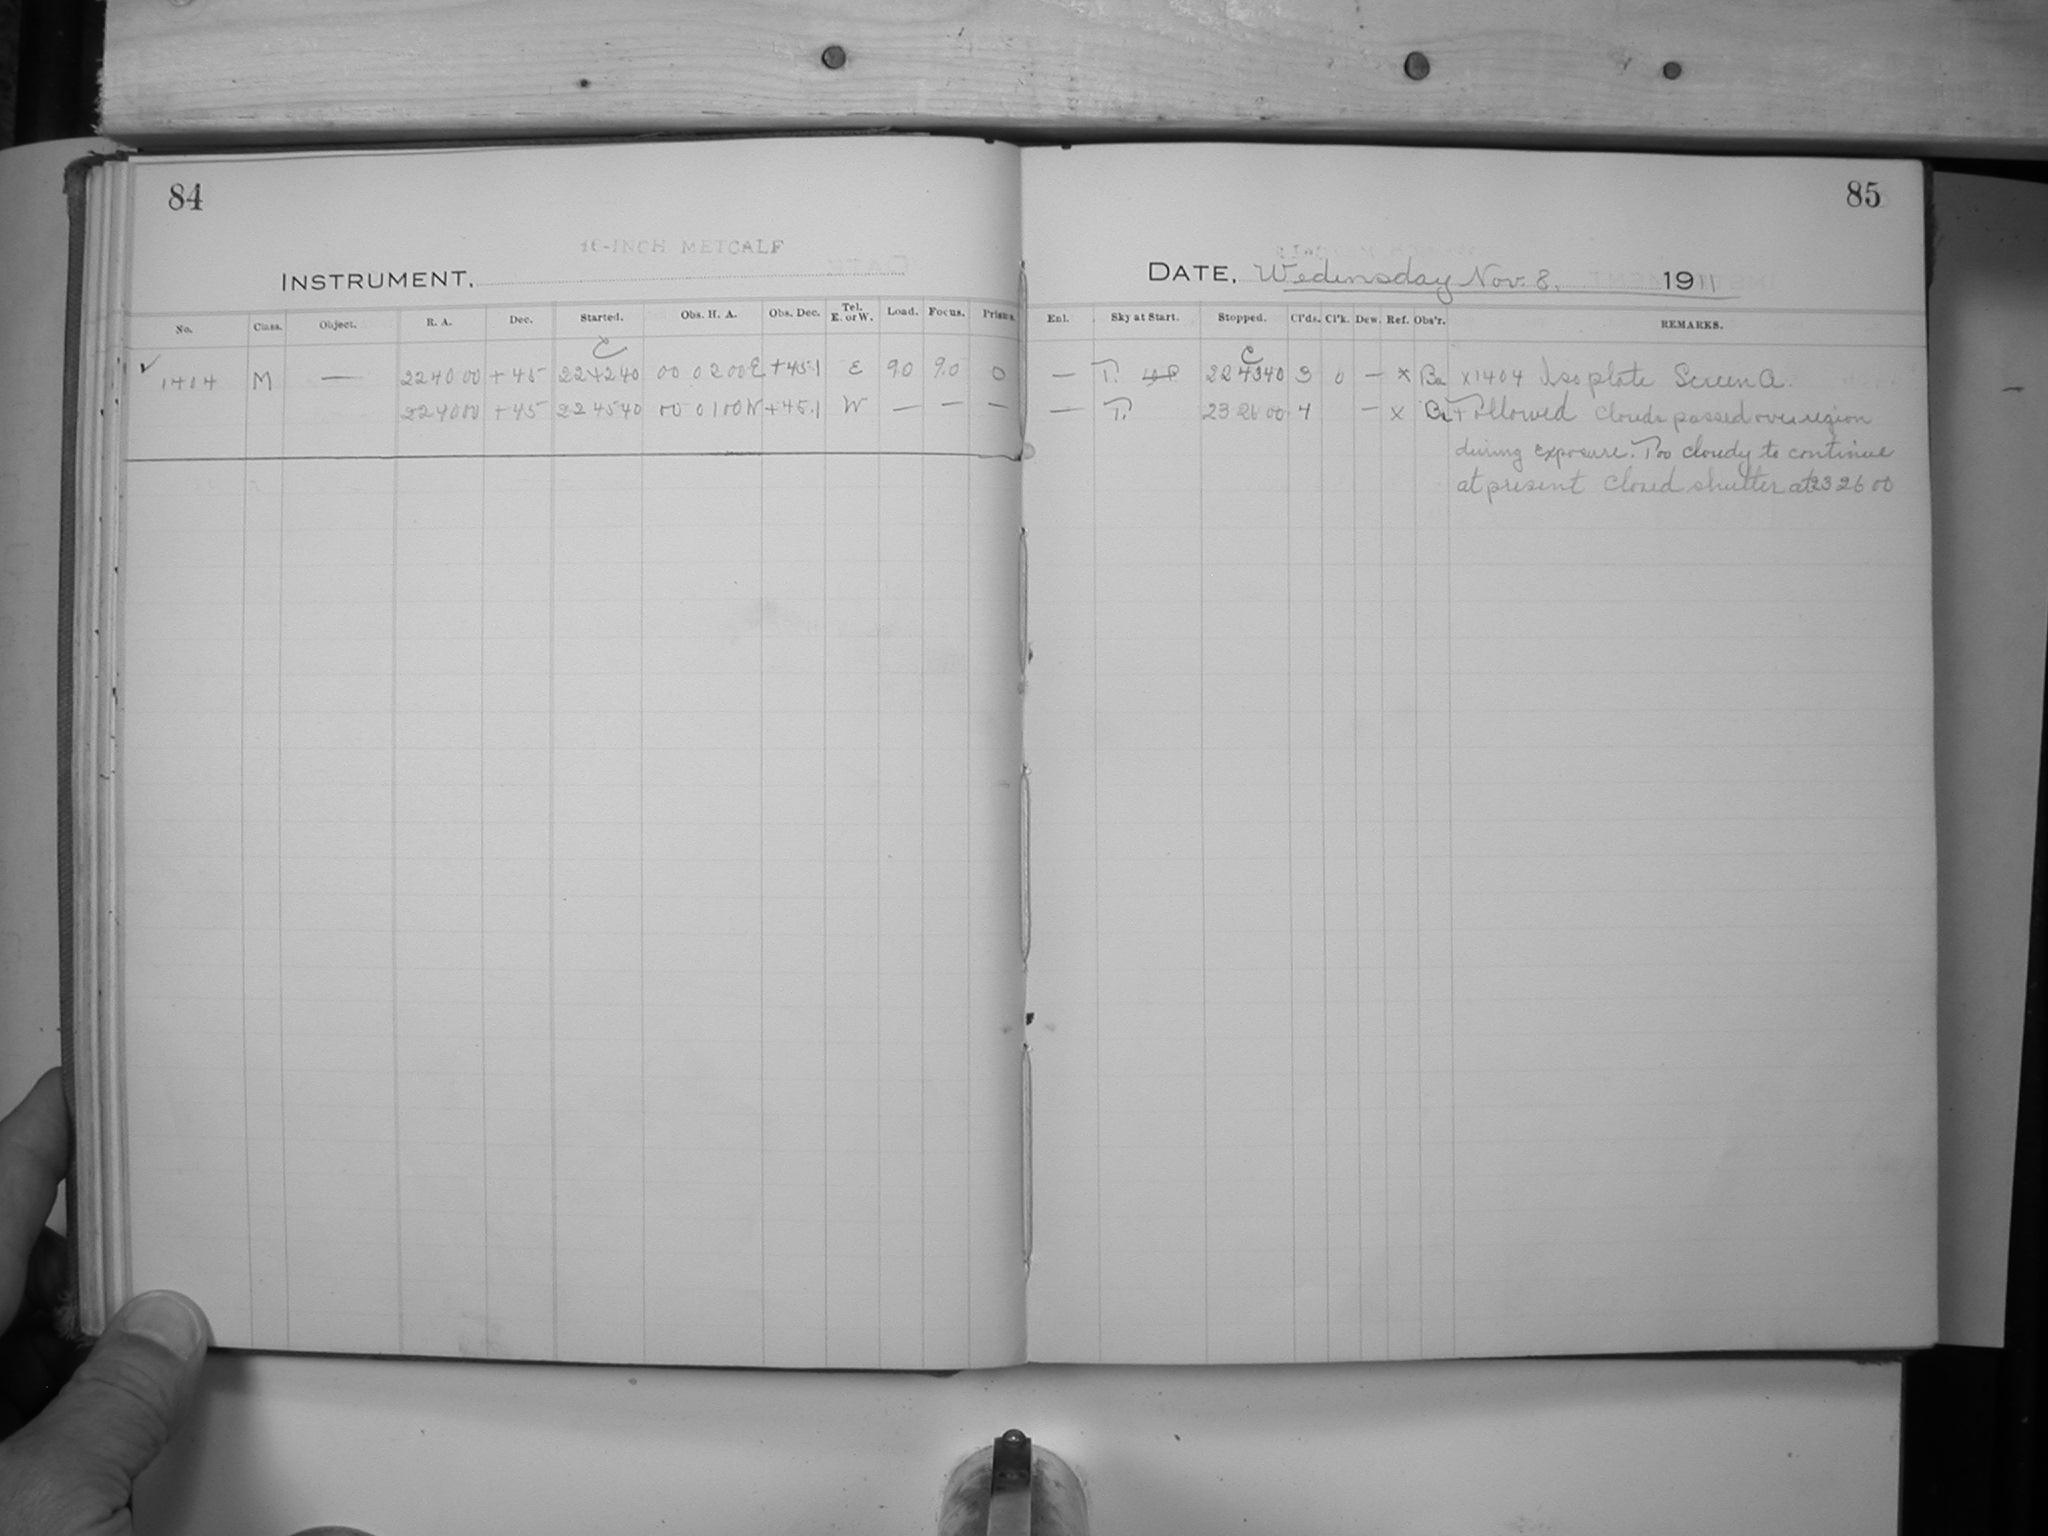 84
85
16-INCH METCALF
INSTRUMENT,
DATE, Wedensday Nov. 8, 1911
No. Class. Object. R. A. Dec. Started. Obs. H. A. Obs. Dec. Tel. E. or W. Load. Focus. Prisms. Enl. Sky at Start. Stopped. Cl'ds. Cl'k. Dew. Ref. Obs'r. REMARKS.
C C
✓ 1404 M — 22 40 00 +45 22 42 40 00 02 00 E +45.1 E 9.0 9.0 0 — T. 22 43 40 3 0 — x Ba x1404 Iso plate Screen A.
22 40 00 +45 22 45 40 00 01 00 W +45.1 W — — — — T. 23 26 00 4 — x Ba + Followed Clouds passed over region
during exposure. Too cloudy to continue
at present Closed shutter at 23 26 00